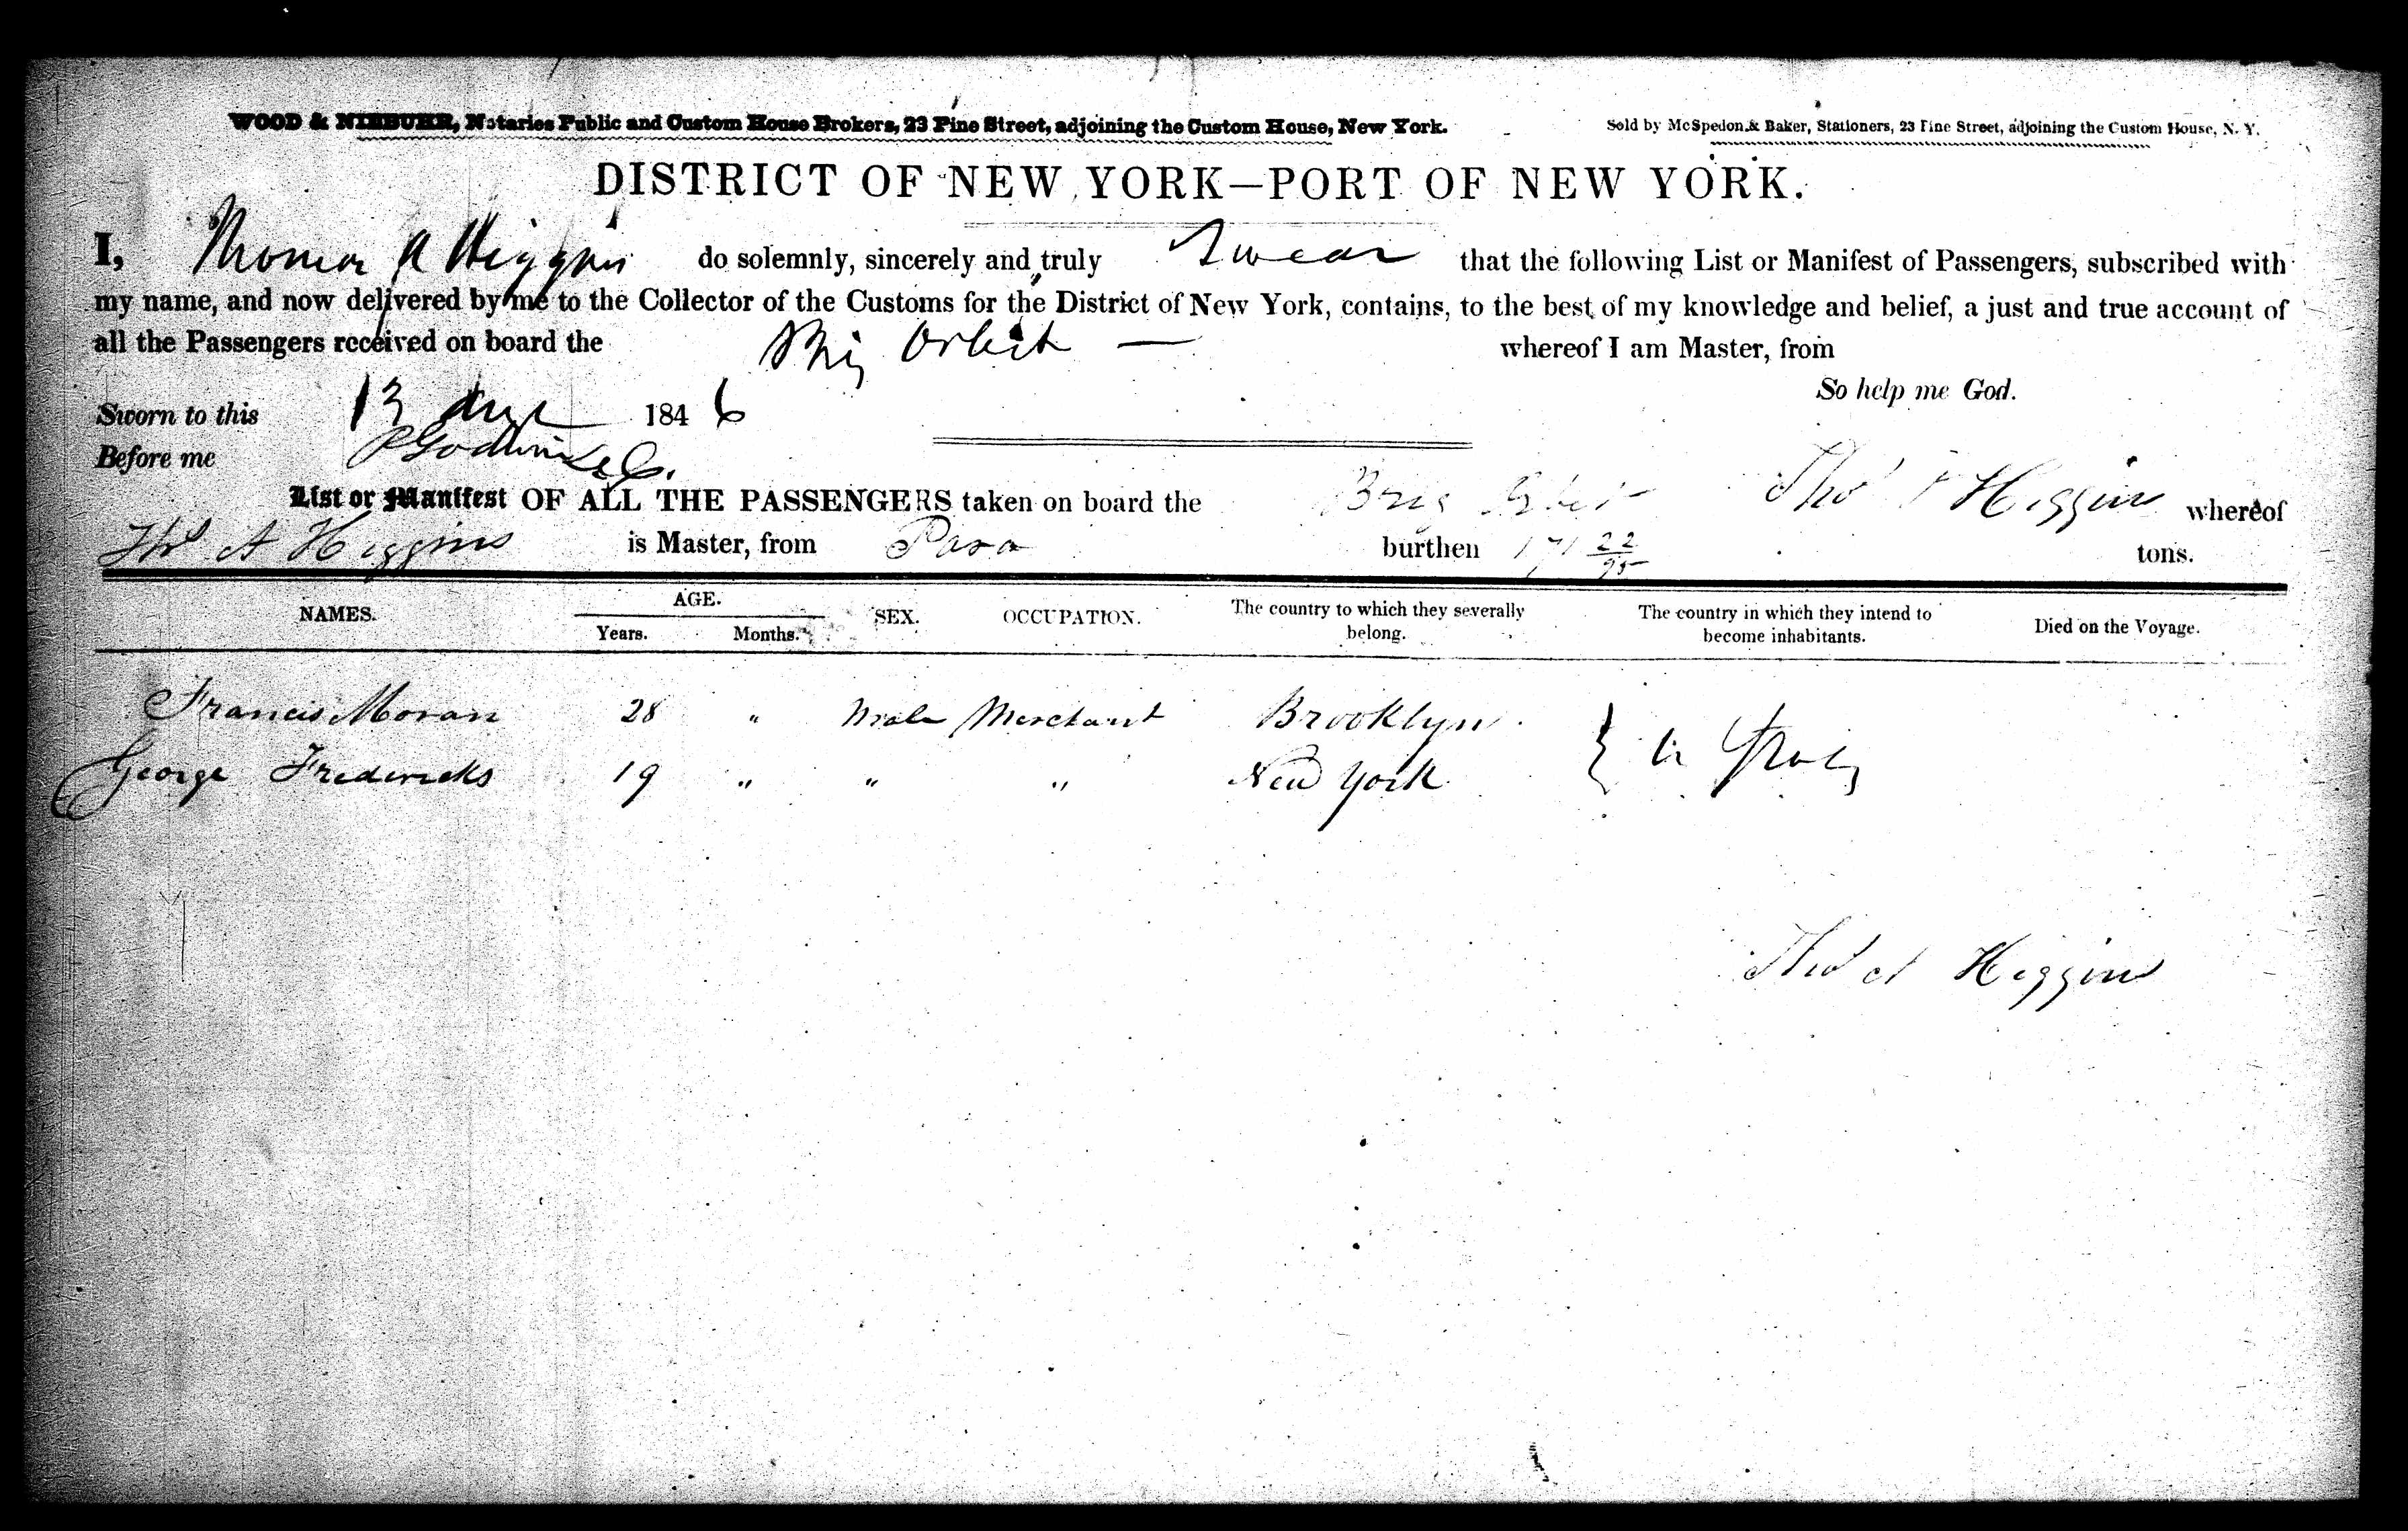 WOOD & NIEBUHR, Notaries Public and Custom House Brokers, 23 Pine Street, adjoining the Custom House, New York. Sold by McSpedon & Baker, Stationers, 23 Pine Street, adjoining the Custom House, N. Y.
DISTRICT OF NEW YORK—PORT OF NEW YORK.
I, Thomas A Higgins do solemnly, sincerely and truly Swear that the following List or Manifest of Passengers, subscribed with
my name, and now delivered by me to the Collector of the Customs for the District of New York, contains, to the best of my knowledge and belief, a just and true account of
all the Passengers received on board the Brig Orbit — whereof I am Master, from
So help me God.
Sworn to this 13 1846
Before me
List or Manifest OF ALL THE PASSENGERS taken on board the Brig Orbit Thos A Higgins whereof
Thos A Higgins is Master, from Para burthen 171 22/95 tons.
NAMES. AGE. Years. Months. SEX. OCCUPATION. The country to which they severally belong. The country in which they intend to become inhabitants. Died on the Voyage.
Francis Moran 28 " Male Merchant Brooklyn
George Fredericks 19 " " " New York
Thos A Higgins